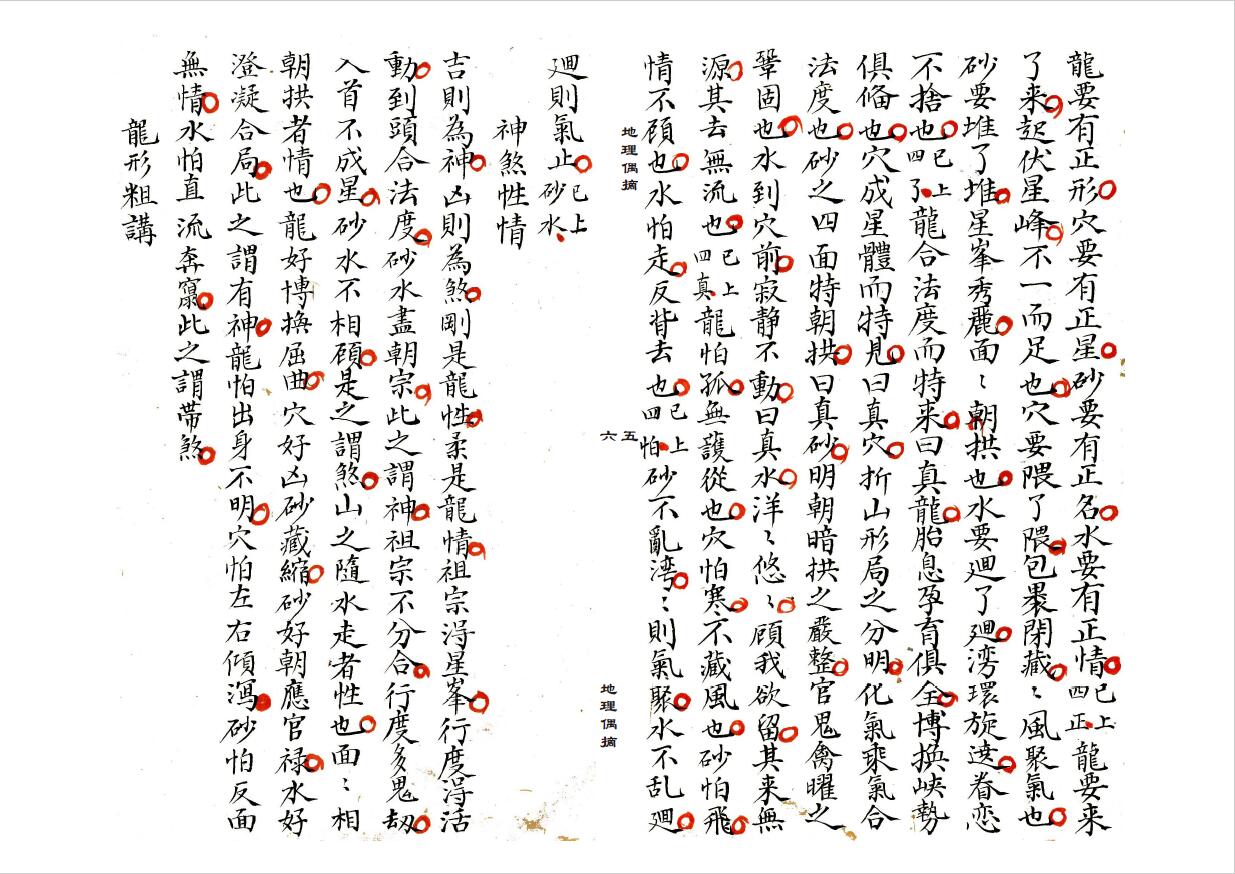 龍要有正形穴要有正星砂要有正名水要有正情已上四正龍要来
了来起伏星峰不一而足也穴要隈了隈包褁閉藏〻風聚氣也
砂要堆了堆星峯秀麗面〻朝拱也水要廻了廻湾環旋遶眷恋
不捨也已上四了龍合法度而特来曰真龍胎息孕育俱全博換峽勢
俱俻也穴成星體而特見曰真穴折山形局之分明化氣乘氣合
法度也砂之四面特朝拱曰真砂明朝暗拱之嚴整官鬼禽曜之
鞏固也水到穴前寂静不動曰真水洋〻悠〻顧我欲留其来無
源其去無流也已上四真龍怕孤無護從也穴怕寒不藏風也砂怕飛
情不顧也水怕走反背去也已上四怕砂不亂湾〻則氣聚水不乱廻
地理偶摘
五
六
地理偶摘
廻則氣止已上砂水
神煞性情
吉則為神凶則為煞剛是龍性柔是龍情祖宗淂星峯行度淂活
動到頭合法度砂水盡朝宗此之謂神祖宗不分合行度多鬼刼
入首不成星砂水不相顧是之謂煞山之隨水走者性也面〻相
朝拱者情也龍好博換屈曲穴好凶砂藏縮砂好朝應官禄水好
澄凝合局此之謂有神龍怕出身不明穴怕左右傾瀉砂怕反面
無情水怕直流奔竄此之謂帯煞
龍形粗講